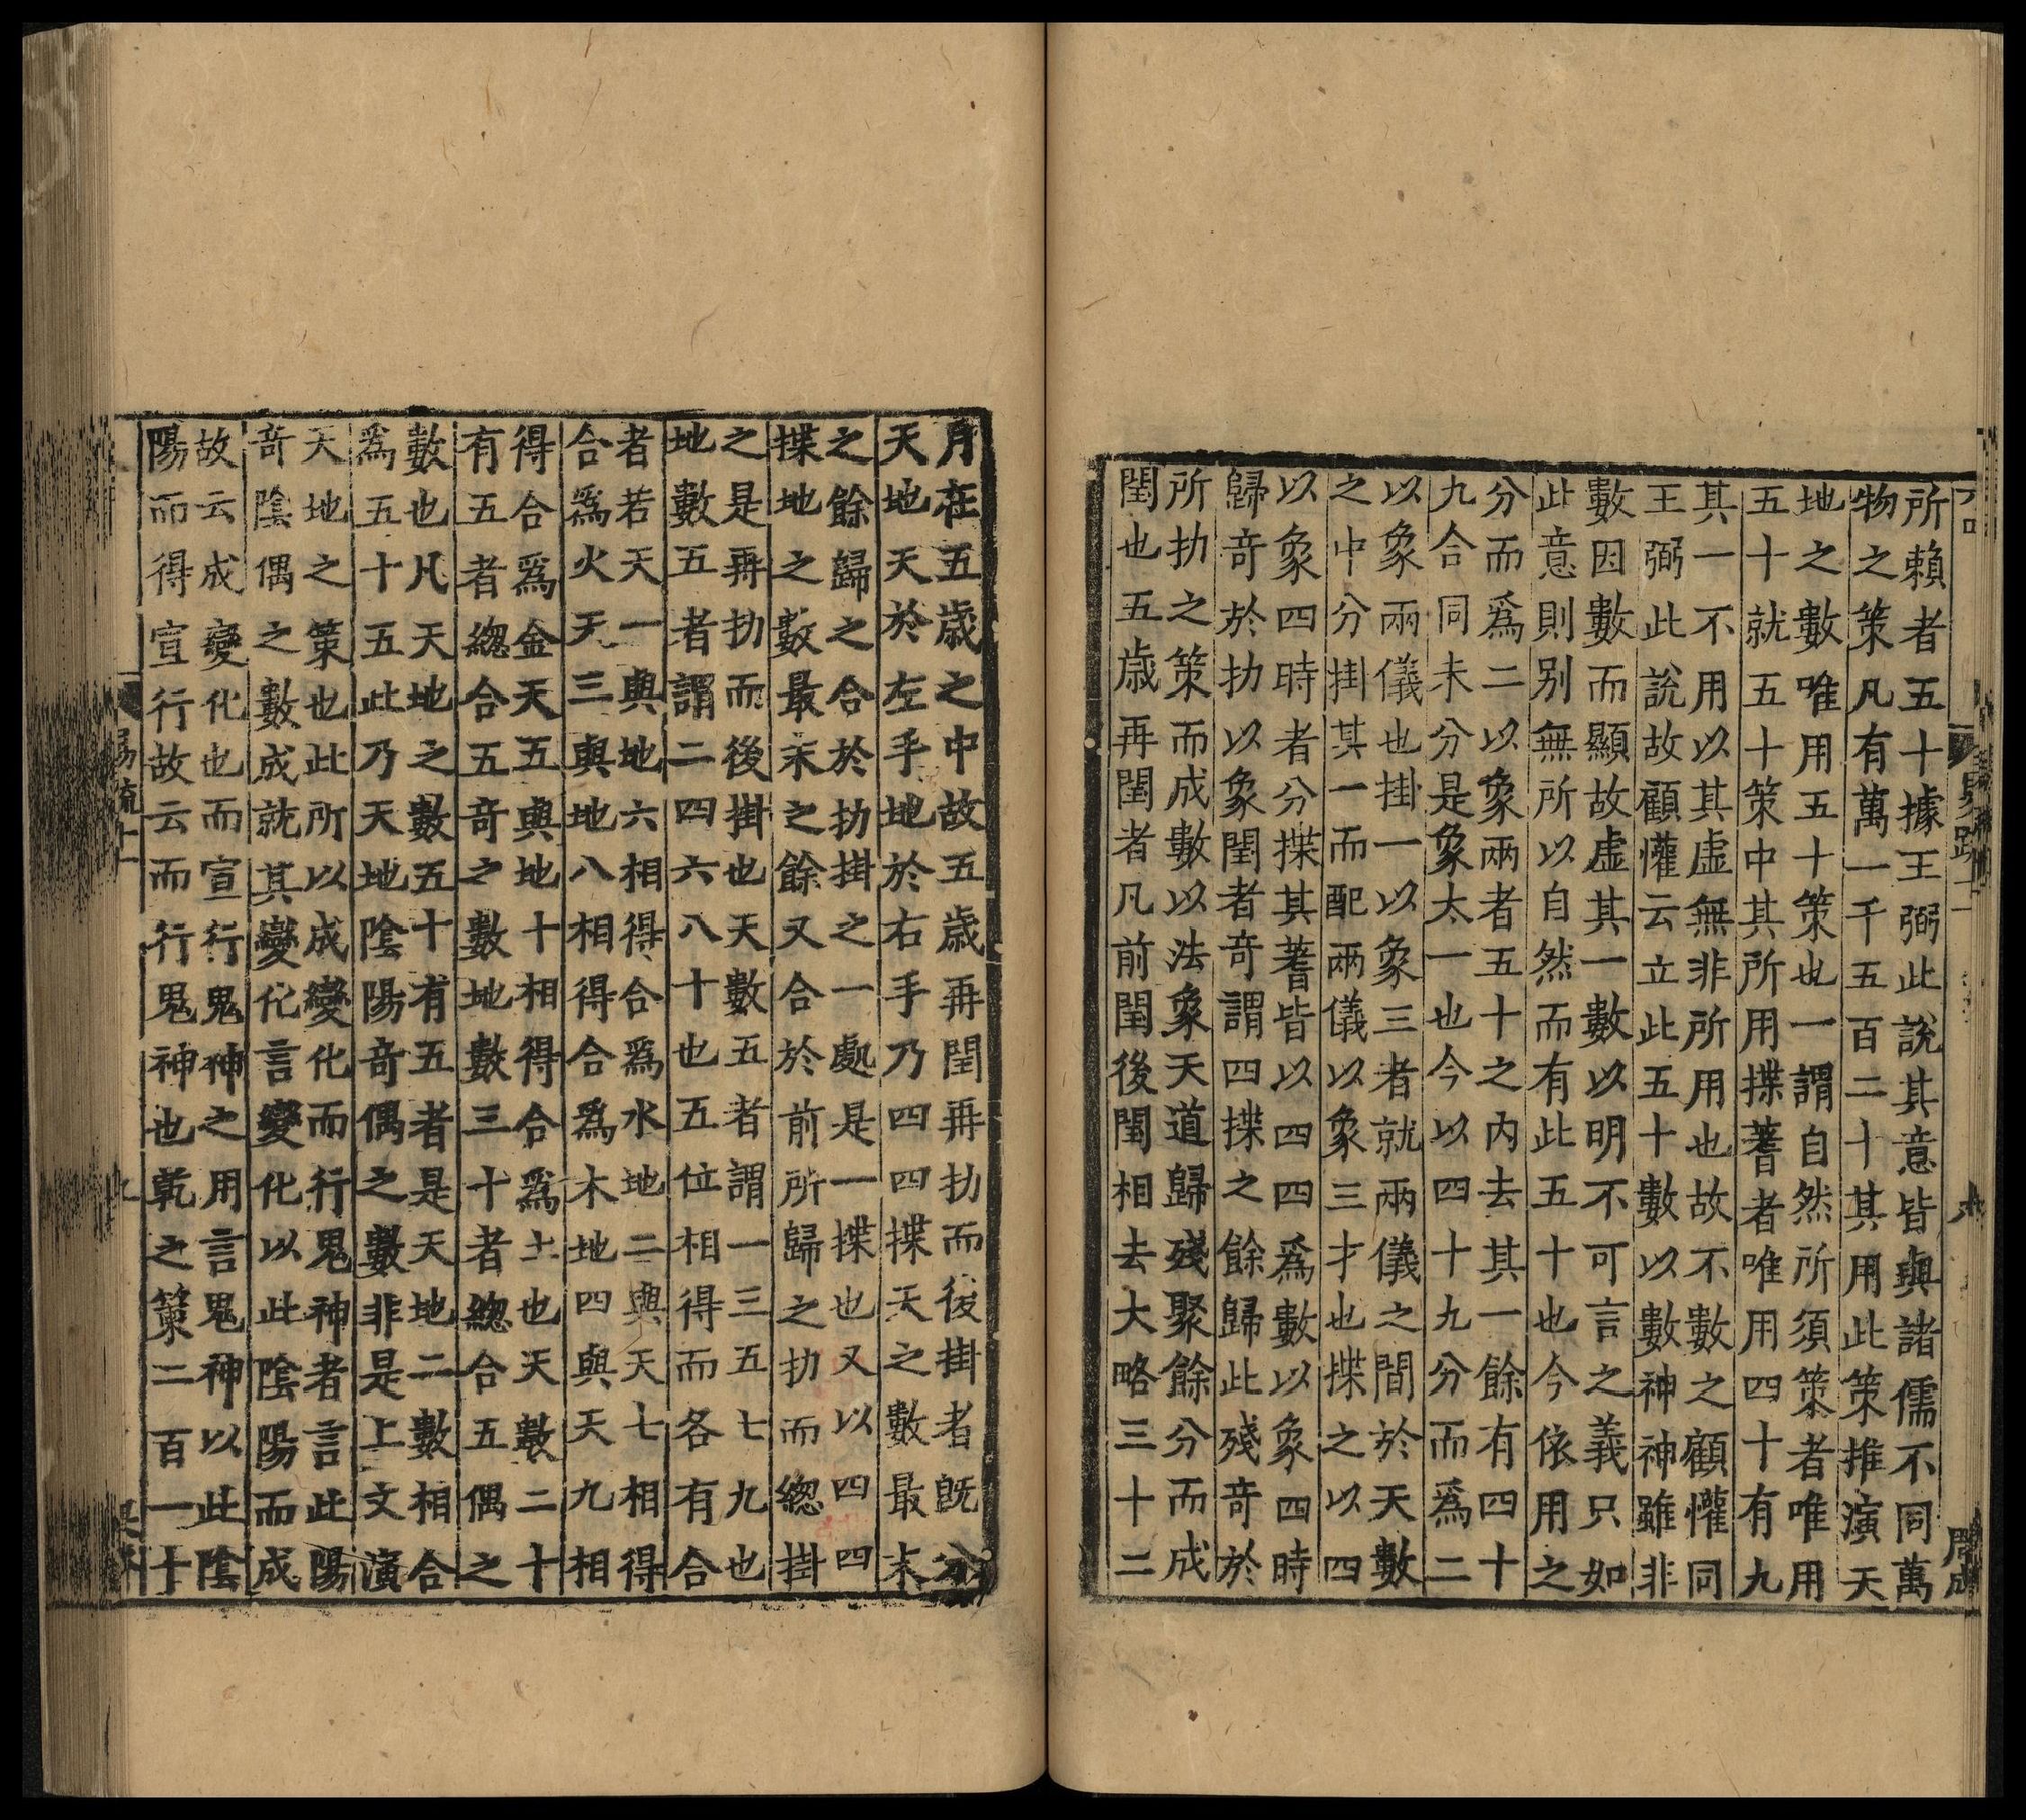 所賴者五十據王弼此說其意皆與諸儒不同萬
物之策凡有萬一千五百二十其用此策推演天
地之數唯用五十策也一謂自然所須策者唯用
五十就五十策中其所用揲蓍者唯用四十有九
其一不用以其虛無非所用也故不數之顧懽同
王弼此說故顧懽云立此五十數以數神神雖非
數因數而顯故虛其一數以明不可言之義只如
此意則別無所以自然而有此五十也今依用之
分而爲二以象兩者五十之內去其一餘有四十
九合同未分是象太一也今以四十九分而爲二
以象兩儀也掛一以象三者就兩儀之間於天數
之中分掛其一而配兩儀以象三才也揲之以四
以象四時者分揲其蓍皆以四四爲數以象四時
歸奇於扐以象閏者奇謂四揲之餘歸此殘奇於
所扐之策而成數以法象天道歸殘聚餘分而成
閏也五歲再閏者凡前閏後閏相去大略三十二
月在五歲之中故五歲再閏再扐而後掛者旣分
天地天於左手地於右手乃四四揲天之數最末
之餘歸之合於扐掛之一處是一揲也又以四四
揲地之數最末之餘又合於前所歸之扐而緫掛
之是再扐而後掛也天數五者謂一三五七九也
地數五者謂二四六八十也五位相得而各有合
者若天一與地六相得合爲水地二與天七相得
合爲火天三與地八相得合爲木地四與天九相
得合爲金天五與地十相得合爲土也天數二十
有五者緫合五奇之數地數三十者緫合五偶之
數也凡天地之數五十有五者是天地二數相合
爲五十五此乃天地陰陽奇偶之數非是上文演
天地之策也此所以成變化而行鬼神者言此陽
奇陰偶之數成就其變化言變化以此陰陽而成
故云成變化也而宣行鬼神之用言鬼神以此陰
陽而得宣行故云而行鬼神也乾之策二百一十